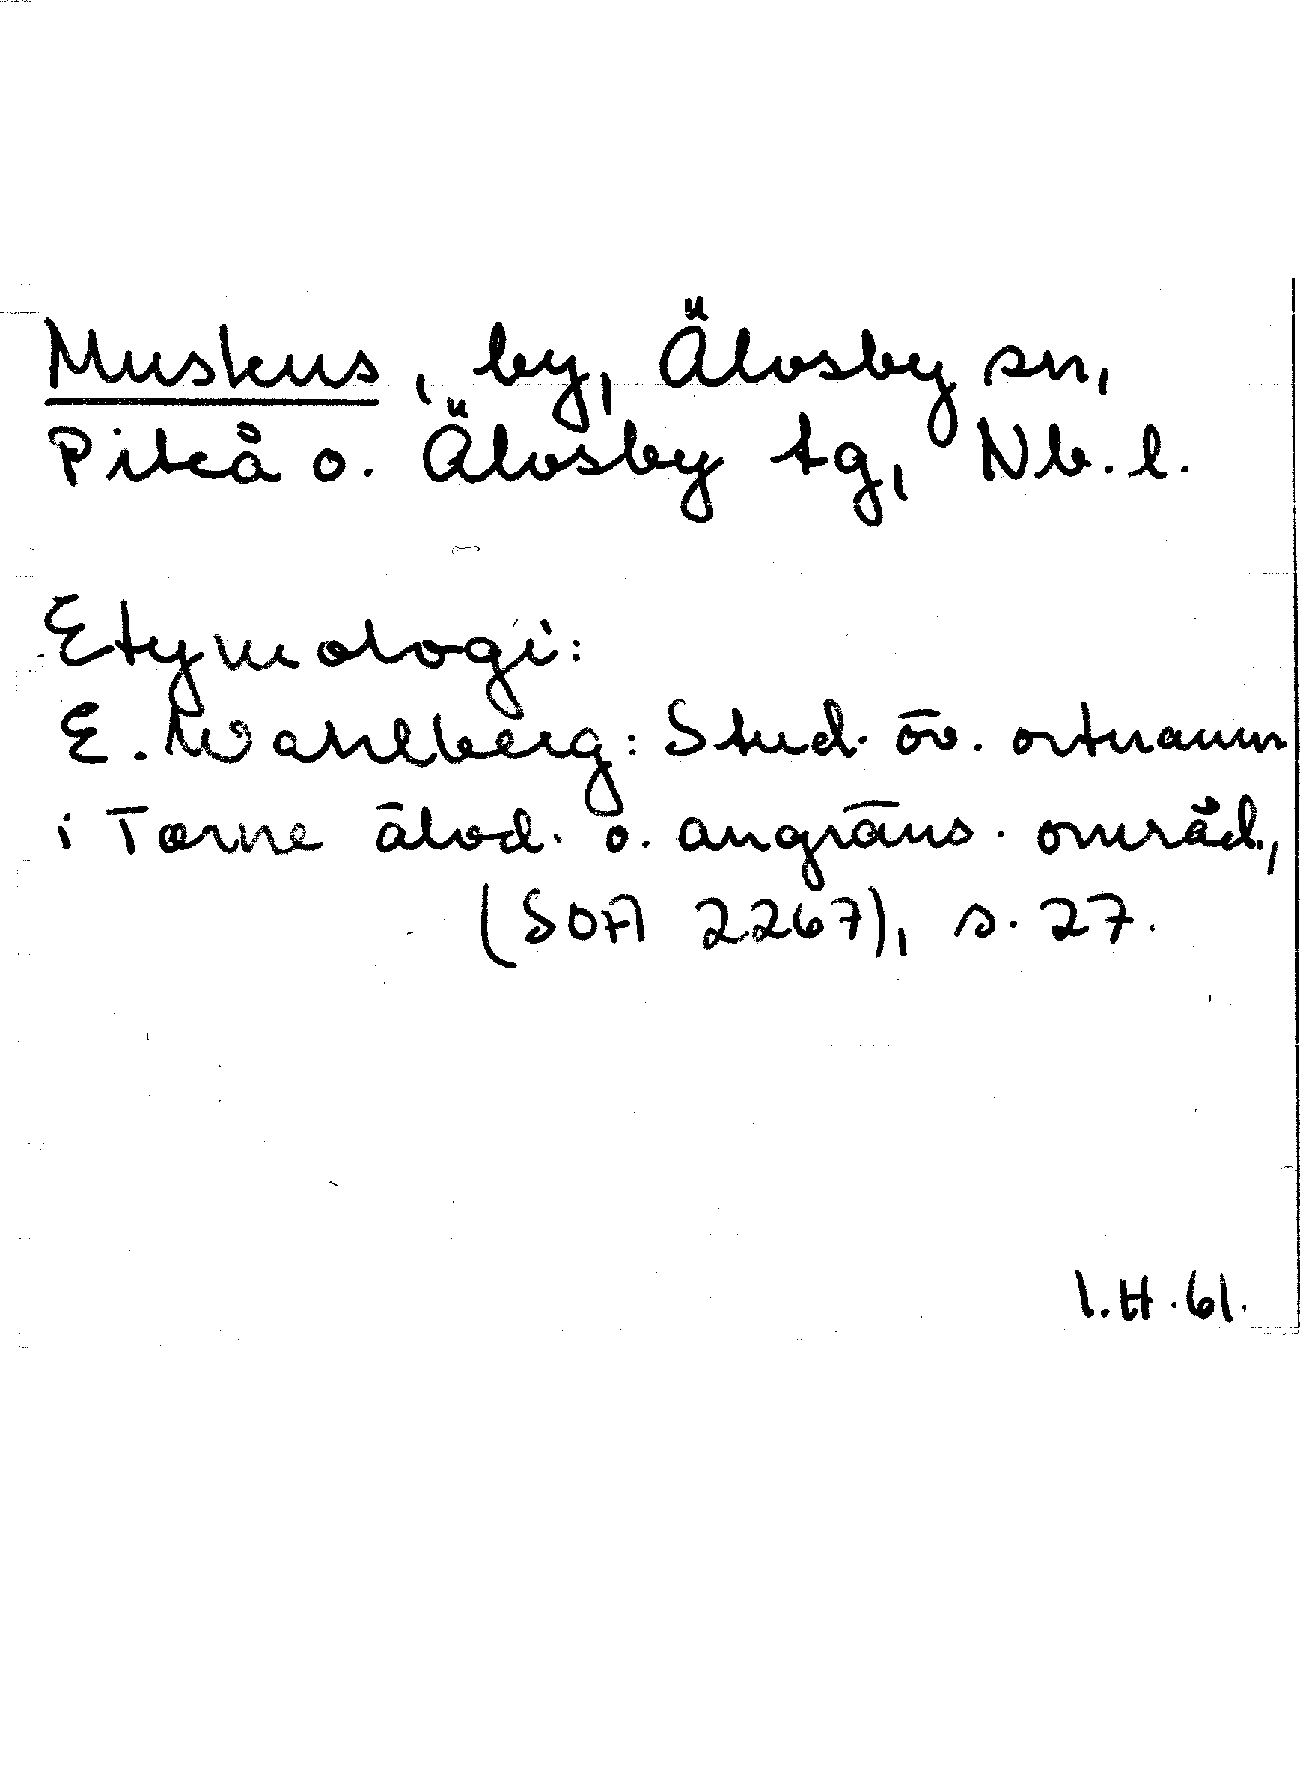 Muskus, by, Älvsby sn,
Piteå o. Älvsby tg, Nb. l.
Etymologi:
E. Wahlberg: Stud. öv. ortnamn
i Torne älvd. o. angräns. områd.,
(SOA 2267), s. 27.
I.H.61.